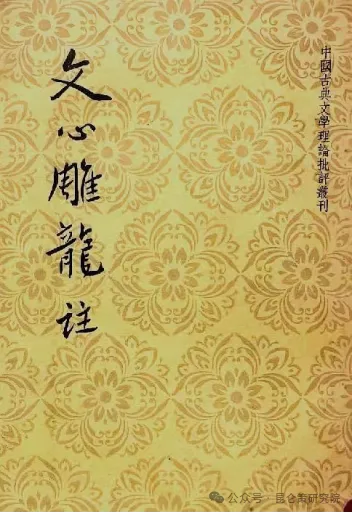 中國古典文學理論批評叢刊
文心雕龍註
公众号·昆仑策研究院